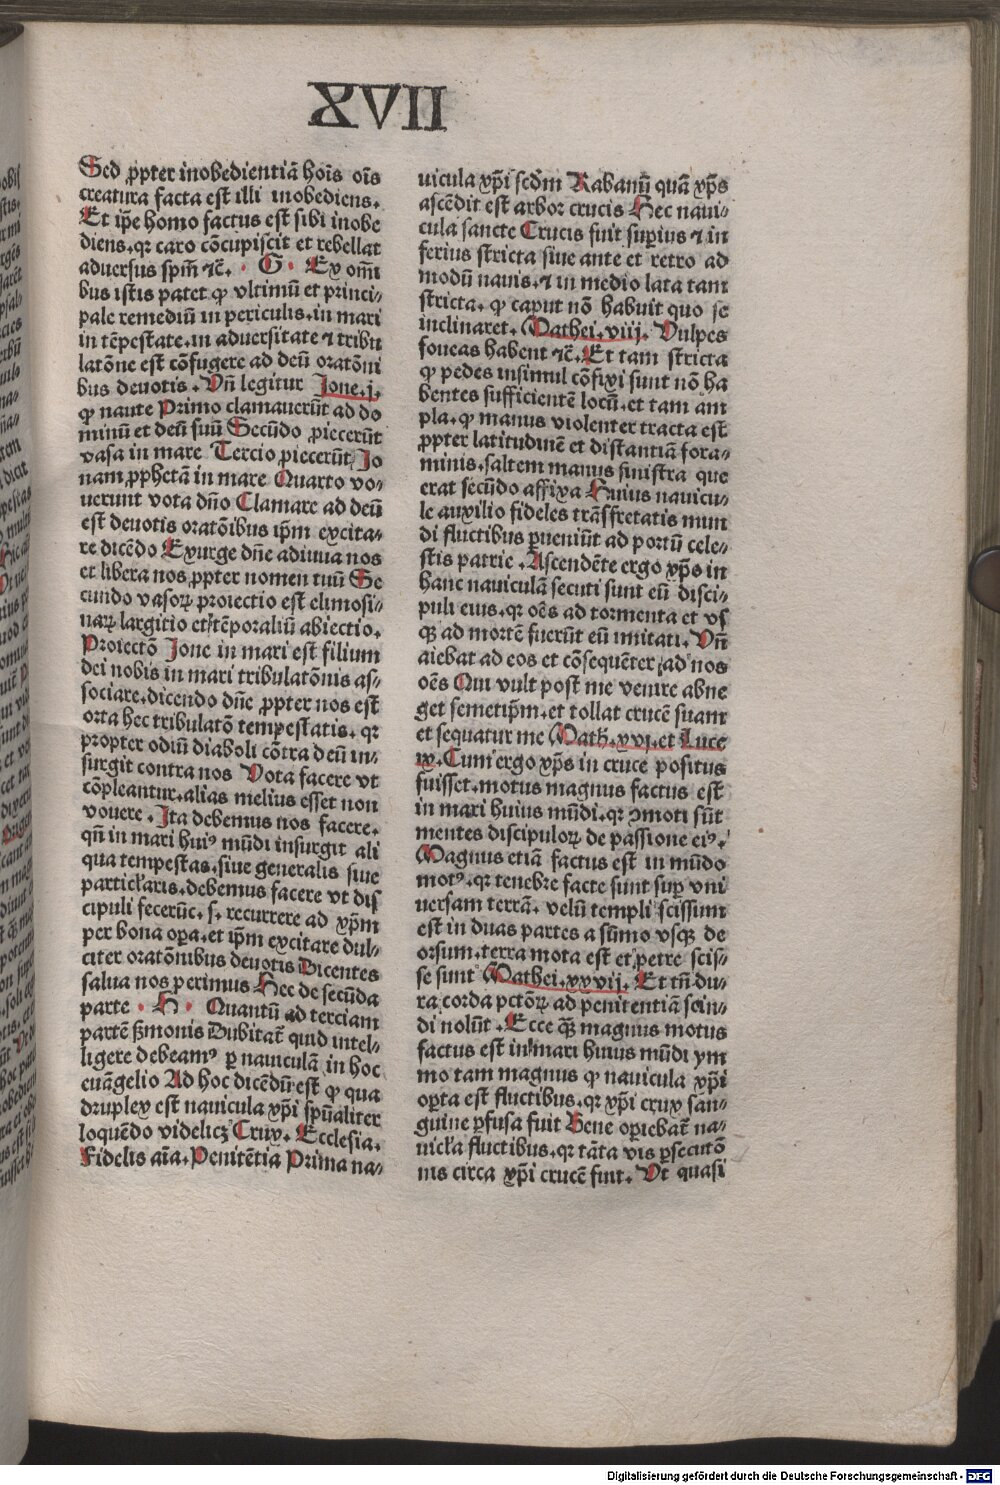 XVII
Sed ꝓpter inobedientiā hoīs oīs
creatura facta est illi inobediens.
Et ip̄e homo factus est sibi inobe
diens. qꝛ caro cōcupiscit et rebellat
aduersus spm̄ ⁊c̄. · G · Ex om̄i
bus istis patet ꝙ vltimū et princi⸗
pale remediū in periculis. in mari
in tēpestate. in aduersitate ⁊ tribu
latōne est cōfugere ad deū oratōni
bus deuotis. Vn̄ legitur Jone. j.
ꝙ naute Primo clamauerūt ad do
minū et deū suū Secūdo ꝓiecerūt
vasa in mare Tercio ꝓiecerūt Jo
nam ꝓphetā in mare Quarto vo⸗
uerunt vota dn̄o Clamare ad deū
est deuotis oratōibus ip̄m excita⸗
re dicēdo Exurge dn̄e adiuua nos
et libera nos ꝓpter nomen tuū Se
cundo vasoꝝ proiectio est elimosi⸗
naꝝ largitio et tēporaliū abiectio.
Proiectō Jone in mari est filium
dei nobis in mari tribulatōnis as⸗
sociare. dicendo dn̄e ꝓpter nos est
orta hec tribulatō tempestatis. qꝛ
propter odiū diaboli cōtra deū in⸗
surgit contra nos Vota facere vt
cōpleantur. alias melius esset non
vouere. Ita debemus nos facere.
qn̄ in mari huiꝰ mūdi insurgit ali
qua tempestas. siue generalis siue
particl̓aris. debemus facere vt dis
cipuli fecerūt. s. recurrere ad xp̄m
per bona oꝑa. et ip̄m excitare dul⸗
citer oratōnibus deuotis Dicentes
salua nos perimus Hec de secūda
parte · H · Quantū ad terciam
partē ẞmonis Dubitat̄ quid intel⸗
ligere debeamꝰ ꝑ nauiculā in hoc
euāngelio Ad hoc dicēdū est ꝙ qua
druplex est nauicula xp̄i spūaliter
loquēdo videlicꝫ Crux. Ecclesia.
Fidelis aīa. Penitētia Prima na⸗
uicula xp̄i scd̄m Rabanū quā xp̄s
ascēdit est arbor crucis Hec naui⸗
cula sancte Crucis fuit suꝑius ⁊ in
ferius stricta siue ante et retro ad
modū nauis. ⁊ in medio lata tam
stricta. ꝙ caput nō habuit quo se
inclinaret. Mathei. viij. Vulpes
foueas habent ⁊c̄. Et tam stricta
ꝙ pedes insimul cōfixi sunt nō ha
bentes sufficientē locū. et tam am
pla. ꝙ manus violenter tracta est
ꝓpter latitudinē et distantiā fora⸗
minis. saltem manus sinistra que
erat secūdo affixa Huius nauicu⸗
le auxilio fideles trāsfretatis mun
di fluctibus ꝑueniūt ad portū cele⸗
stis patrie. Ascendēte ergo xp̄s in
hanc nauiculā secuti sunt eū disci⸗
puli eius. qꝛ oēs ad tormenta et vs
qꝫ ad mortē fuerūt eū imitati. Vn̄
aiebat ad eos et cōsequēter ad nos
oēs Qui vult post me venire abne
get semetip̄m. et tollat crucē suam
et sequatur me Math. xvj. et Luce
ix. Cum ergo xp̄s in cruce positus
fuisset. motus magnus factus est
in mari huius mūdi. qꝛ ꝯmoti sūt
mentes discipuloꝝ de passione eiꝰ.
Magnus etiā factus est in mūdo
motꝰ. qꝛ tenebre facte sunt suꝑ vni
uersam terrā. velū templi scissum
est in duas partes a sūmo vsqꝫ de
orsum. terra mota est et petre scis⸗
se sunt Mathei. xxvij. Et tn̄ du⸗
ra corda pctōꝝ ad penitentiā scin⸗
di nolūt. Ecce qꝫ magnus motus
factus est in mari huius mūdi ym
mo tam magnus ꝙ nauicula xp̄i
oꝑta est fluctibus. qꝛ xp̄i crux san⸗
guine ꝑfusa fuit Bene oꝑiebat̄ na⸗
uicl̓a fluctibus. qꝛ tāta vis ꝑsecutō
nis circa xp̄i crucē fuit. Vt quasi
Digitalisierung gefördert durch die Deutsche Forschungsgemeinschaft - DFG